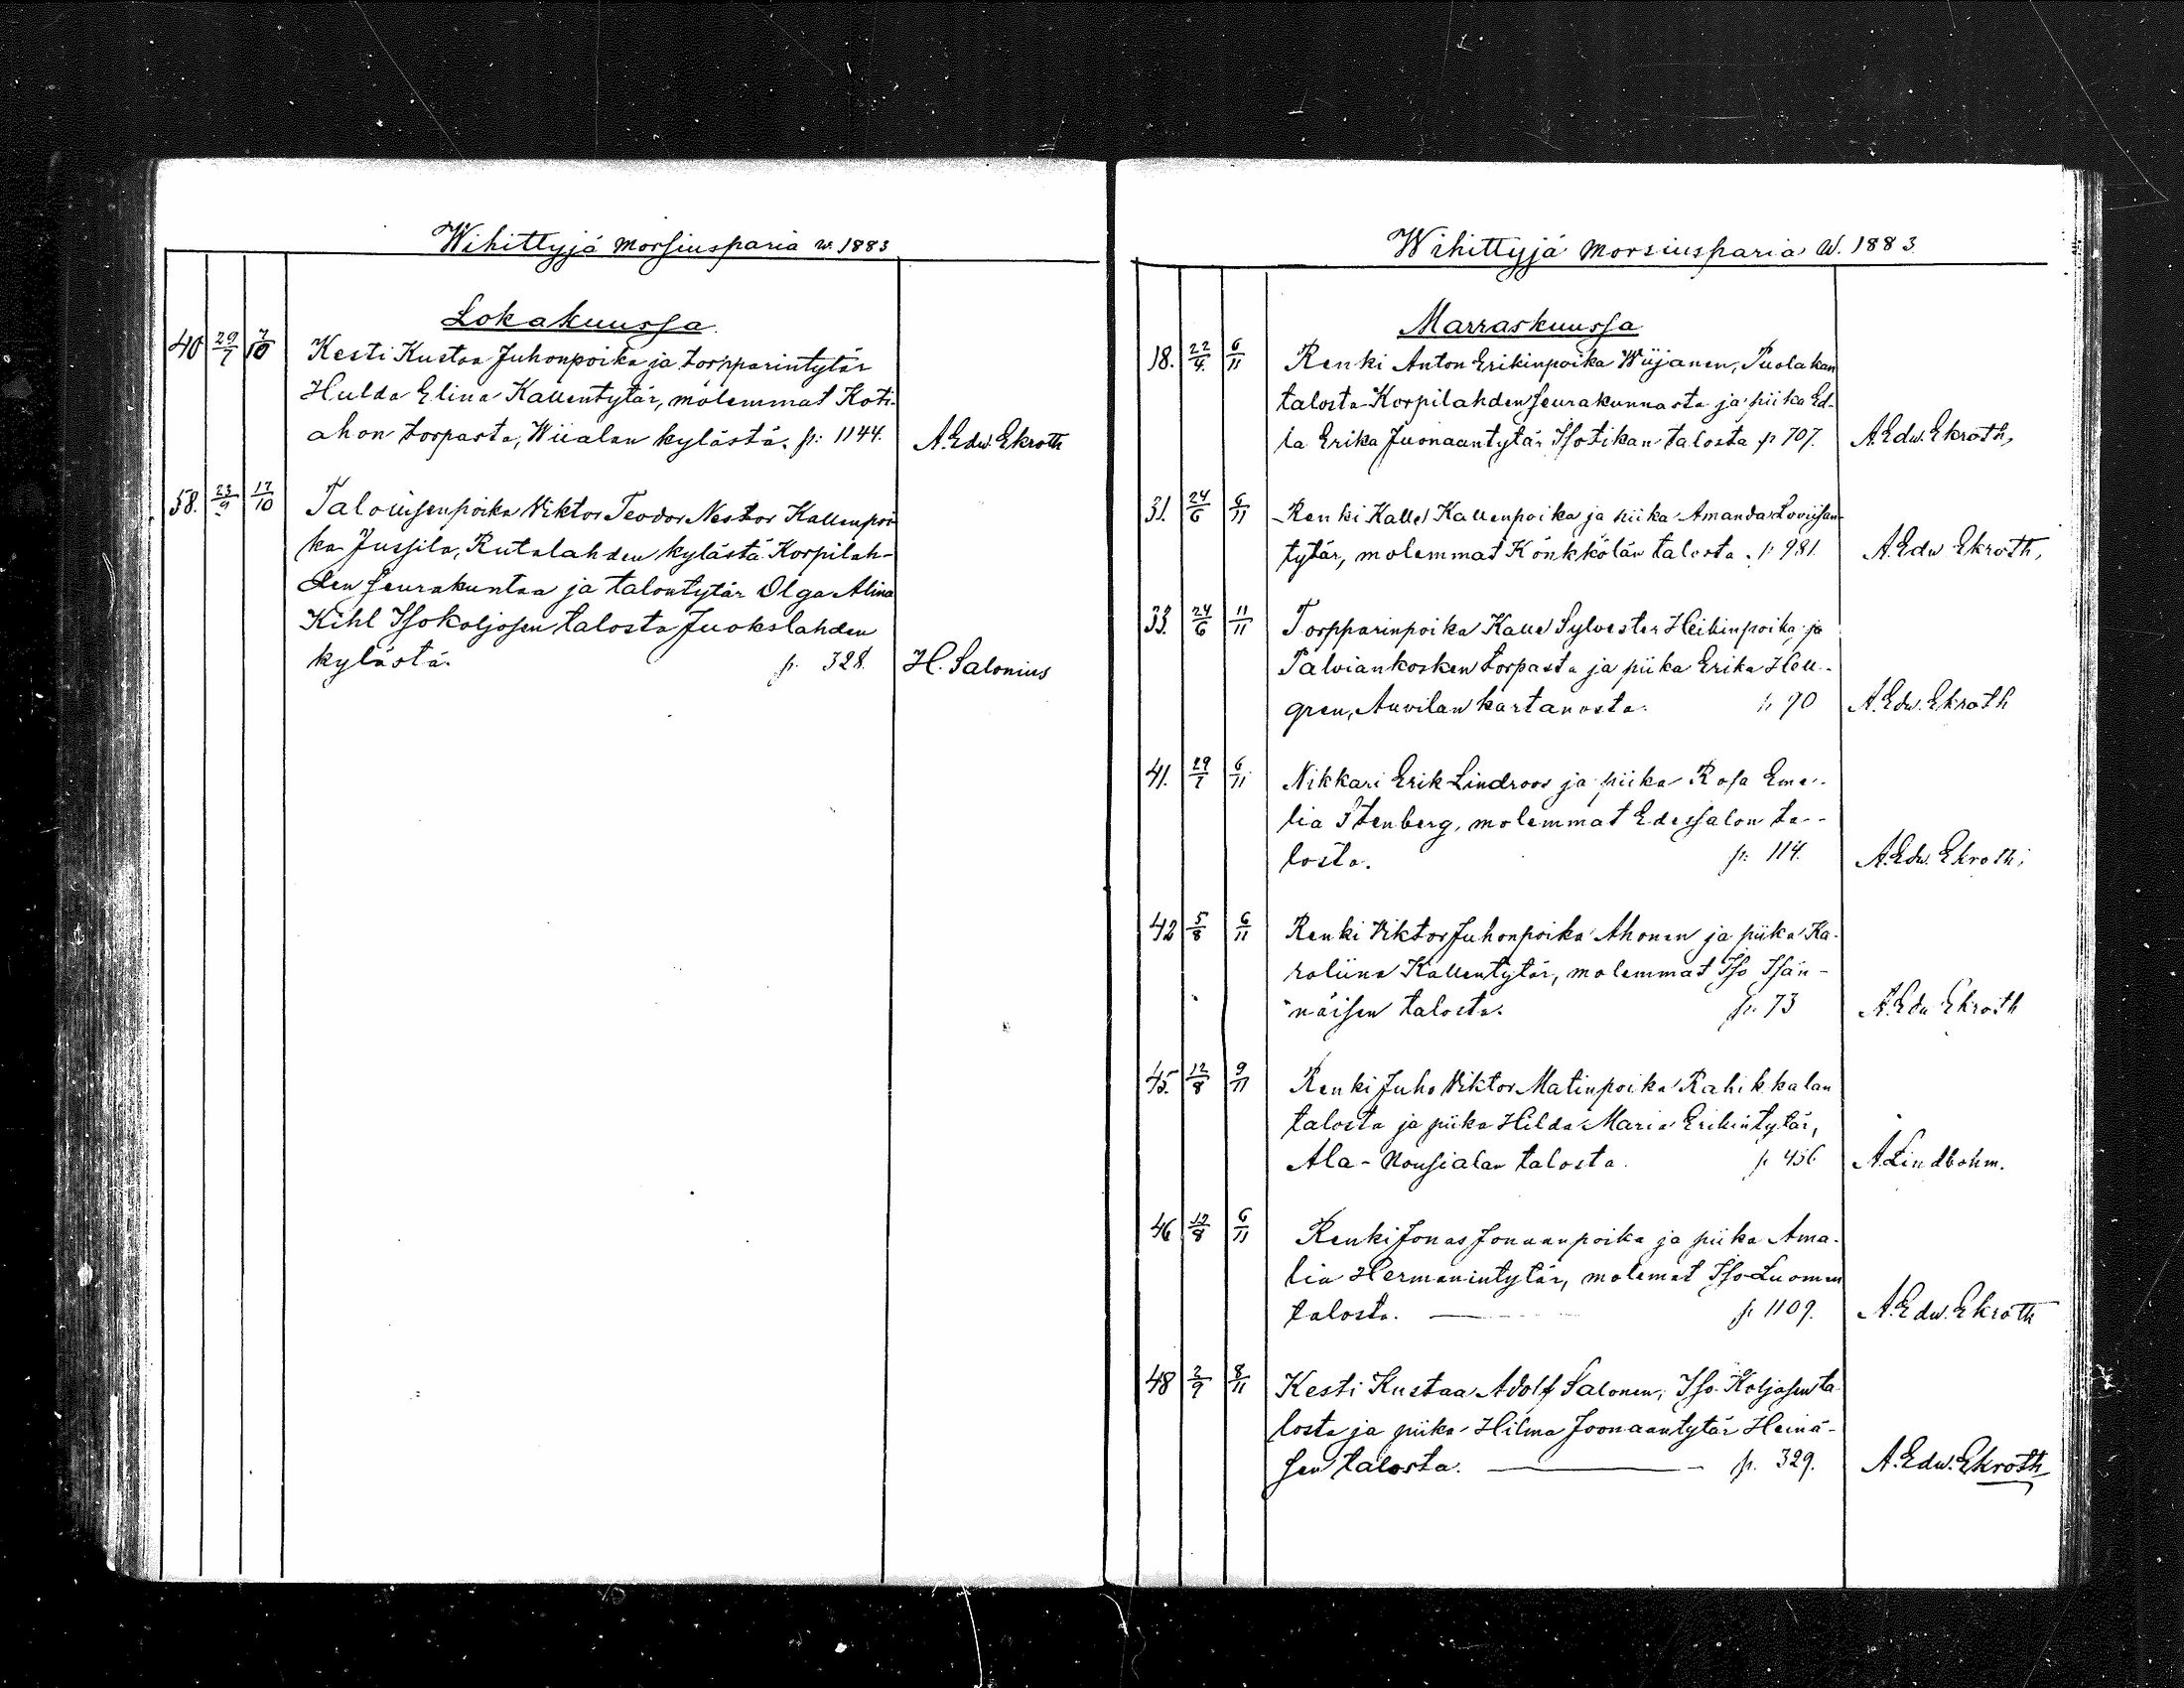 Wihittyjä morsiusparia w. 1883
Lokakuussa.
40 29/7 7/10 Kesti Kustaa Juhonpoika ja torpparintytär
Hulda Elina Kallentytär, molemmat Koti-
ahon torpasta, Wiialan kylästä. p: 1144. A. Edw. Ekroth
58. 23/9 17/10 Talollisenpoika Viktor Teodor Nestor Kallenpoi-
ka Jussila, Rutalahden kylästä Korpilah-
den seurakuntaa ja talontytär Olga Alina
Kihl Isokoljosen talosta Juokslahden
kylästä. p. 328. H. Salonius
Wihittyjä morsiusparia w. 1883
Marraskuussa
18. 22/4. 6/11 Renki Anton Erikinpoika Wiijanen, Puolakan
talosta Korpilahden seurakunnasta ja piika Ed-
la Erika Juonaantytär Isotikan talosta p 707. A. Edw. Ekroth,
31. 24/6 6/11 Renki Kalle Kallenpoika ja piika Amanda Loviisan-
tytär, molemmat Könkkölän talosta. p. 981. A. Edw Ekroth,
33. 24/6 11/11 Torpparinpoika Kalle Sylvester Heikinpoika ja
Palviankosken torpasta ja piika Erika Hell-
gren, Auvilan kartanosta. p. 90 A. Edw. Ekroth
41. 29/7 6/11 Nikkari Erik Lindroos ja piika Rosa Eme-
lia Stenberg, molemmat Edessalon ta-
losta. p: 114. A. Edw. Ekroth;
42 5/8 6/11 Renki Viktor Juhonpoika Ahonen ja piika Ka-
roliina Kallentytär, molemmat Iso Isän-
näisen talosta. p. 73 A. Edw Ekroth
45. 12/8 9/11 Renki Juho Viktor Matinpoika Rahikkalan
talosta ja piika Hilda Maria Erikintytär,
Ala-Nousialan talosta. p 456 A Lindbohm.
46 12/8 6/11 Renki Jonas Jonaanpoika ja piika Ama-
lia Hermanintytär, molemat Iso Luomen
talosta. p. 1109. A. Edw. Ekroth
48 2/9 8/11 Kesti Kustaa Adolf Salonen, Iso-Koljosen ta-
losta ja piika Hilma Joonaantytär Heinä-
sen talosta. p. 329. A. Edw. Ekroth